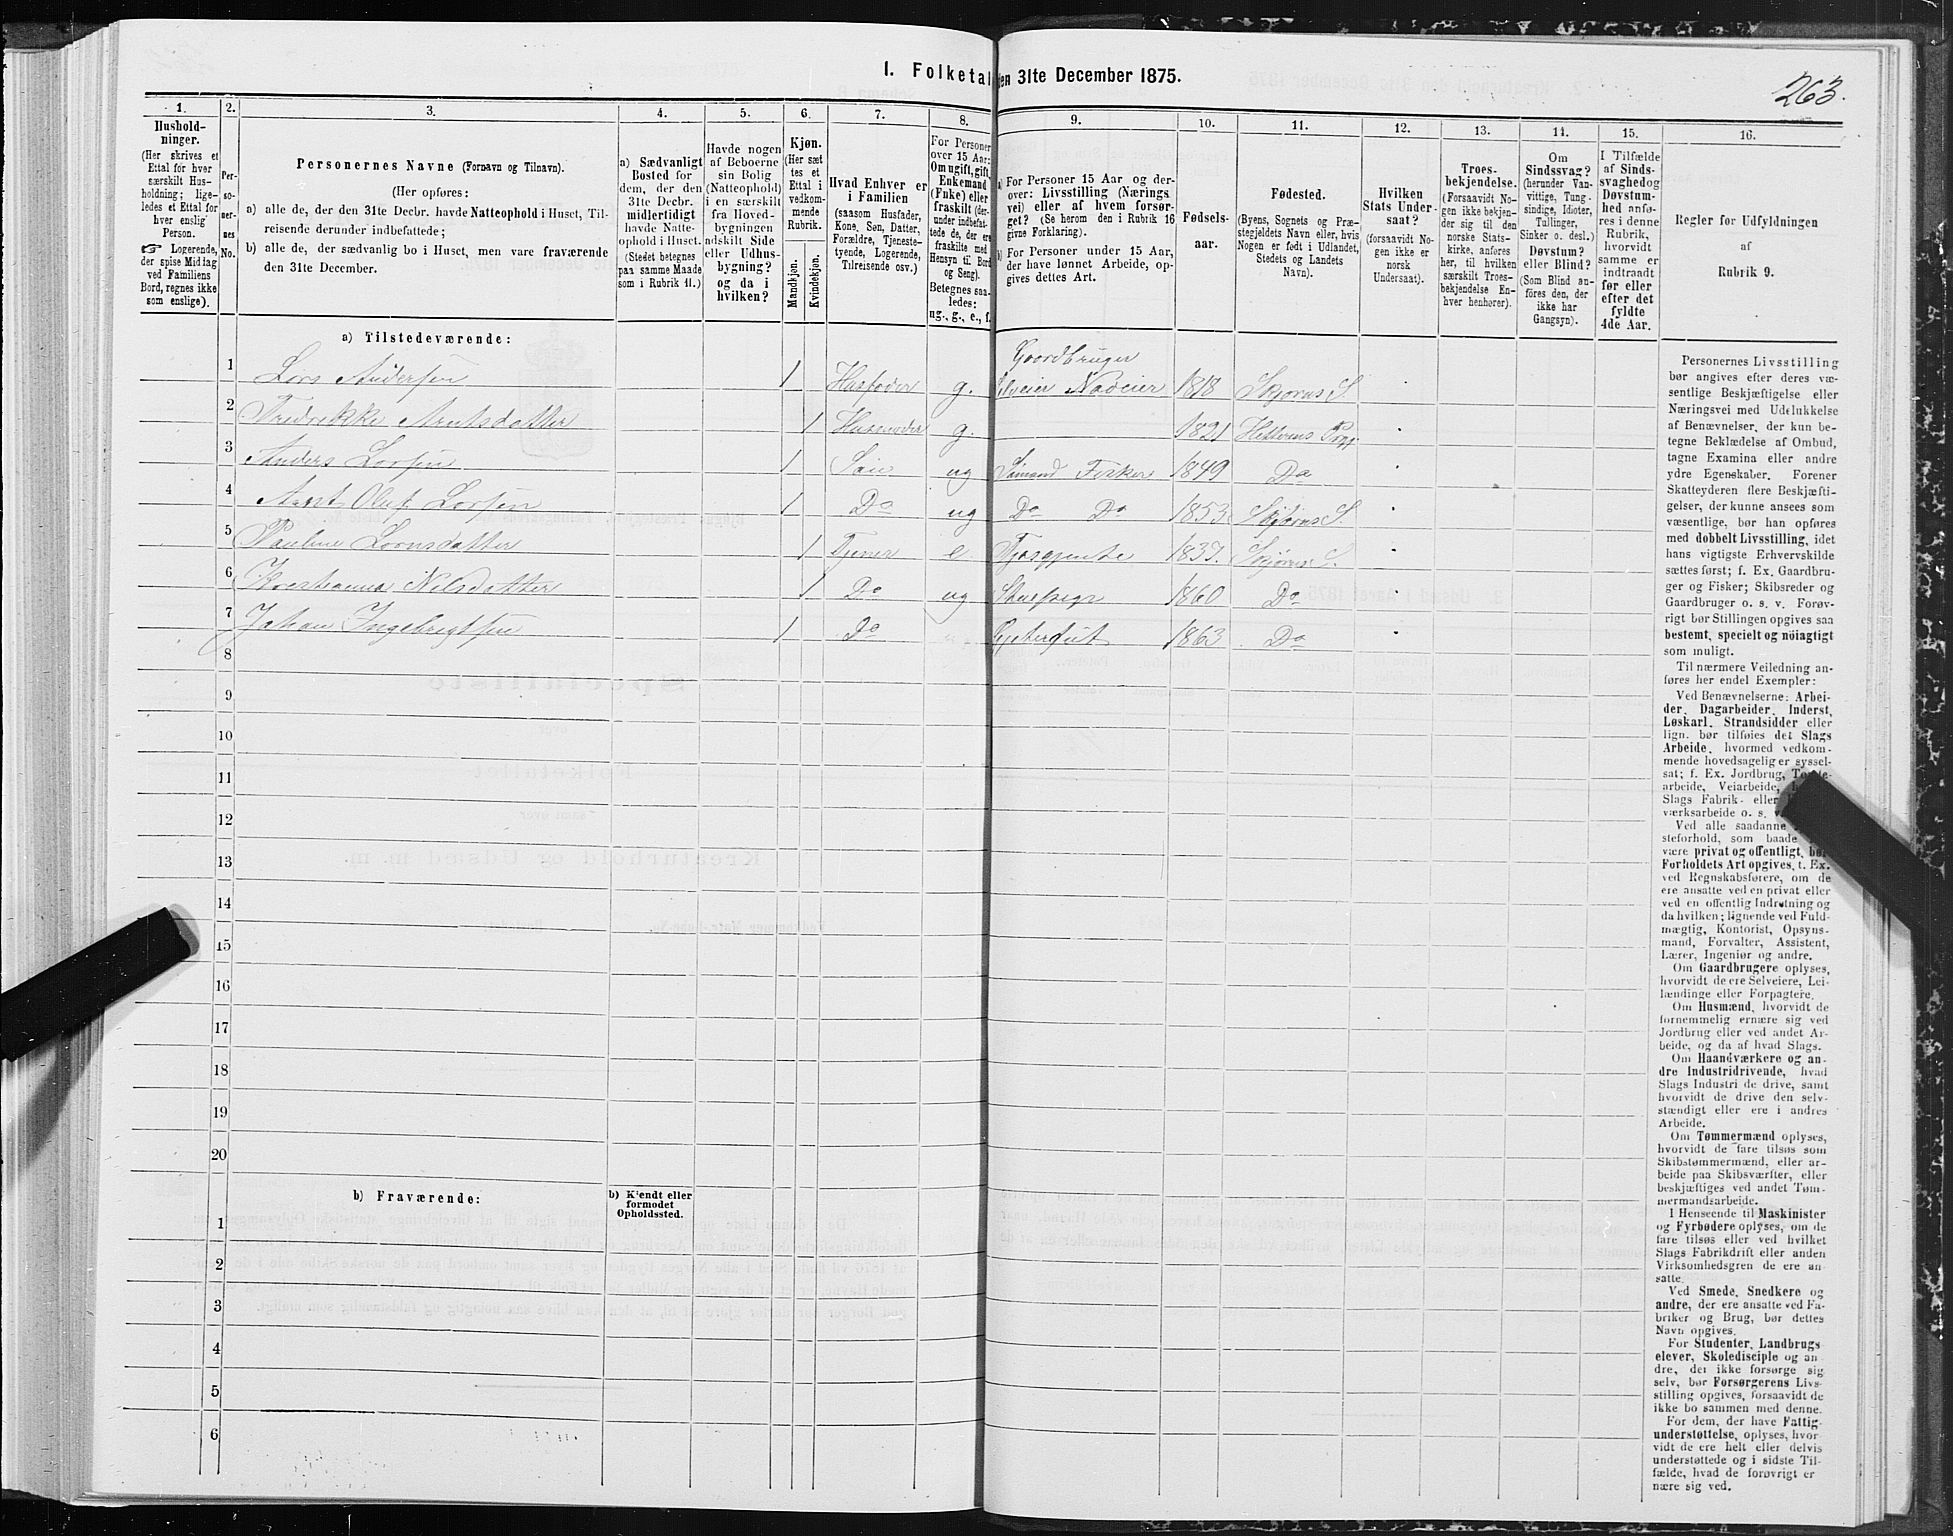 263.
I. Folketal den 31te December 1875.
1. 2. 3. 4. 5. 6. 7. 8. 9. 10. 11. 12. 13. 14. 15. 16.
Husholdninger.
(Her skrives et
Ettal for hver
særskilt Husholdning;
ligeledes et Ettal for
hver enslig
Person.
☞ Logerende,
der spise Middag
ved Familiens
Bord, regnes ikke
som enslige).
Personernes No.
Personernes Navne (Fornavn og Tilnavn).
(Her opføres:
a) alle de, der den 31te Decbr. havde Natteophold i Huset, Tilreisende derunder indbefattede;
b) alle de, der sædvanlig bo i Huset, men vare fraværende
den 31te December.
a) Sædvanligt
Bosted for
dem, der den
31te Decbr.
midlertidigt
havde Natteophold i Huset.
(Stedet betegnes
paa samme Maade
som i Rubrik 11.)
Havde nogen
af Beboerne
sin Bolig
(Natteophold)
i en særskilt
fra Hovedbygningen
adskilt Side
eller Udhusbygning?
og da i
hvilken?
Kjøn.
(Her sættes et
Ettal i
vedkommende
Rubrik.
Mandkjøn.
Kvindekjøn.
Hvad Enhver er
i Familien
(saasom Husfader,
Kone, Søn, Datter,
Forældre, Tjenestetyende, Logerende,
Tilreisende osv.)
For Personer
over 15 Aar:
Om ugift, gift,
Enkemand
(Enke) eller
fraskilt (derunder indbefattede de, der ere
fraskilte med
Hensyn til Bord
og Seng).
Betegnes saaledes:
ug., g., e., f.
a) For Personer 15 Aar og derover: Livsstilling (Næringsvei) eller af hvem forsørget? (Se herom den i Rubrik 16
givne Forklaring).
b) For Personer under 15 Aar,
der have lønnet Arbeide, opgives dettes Art.
Fødselsaar.
Fødested.
(Byens, Sognets og Præstegjeldets Navn eller, hvis
Nogen er født i Udlandet,
Stedets og Landets
Navn).
Hvilken
Stats Undersaat?
(forsaavidt Nogen ikke er
norsk
Undersaat).
Troesbekjendelse.
(Forsaavidt Nogen ikke bekjender sig til den
norske Statskirke, anføres
her, til hvilken
særskilt Troesbekjendelse Enhver henhører).
Om
Sindssvag?
(herunder Vanvittige, Tungsindige, Idioter,
Tullinger,
Sinker o. desl.)
Døvstum?
eller Blind?
(Som Blind anføres den, der
ikke har
Gangsyn).
I Tilfælde
af Sindssvaghed og
Døvstumhed anføres i denne
Rubrik,
hvorvidt
samme er
indtraadt
før eller
efter det
fyldte
4de Aar.
Regler for Udfyldningen
af
Rubrik 9.
a) Tilstedeværende:
1 Lars Andersen 1 Husfader g. Gaardbruger Selveier 1818 Skjørns S
2 Fredrekke Arntsdatter 1 Husmoder g. 1821 Hitterens
3 Anders Larsen 1 Søn ug Sømand Fisker 1849 Do
4 Arnt Oluf Larsen 1 Do ug Do Do 1853 Skjørns S.
5 Pauline 1 Tjener e 1837. Skjørns S.
6 Nilsdatter 1 Do ug 1860 Do
7 Johan Ingebrigtsen 1 Do Gjetergut 1863 Do
8
9
10
11
12
13
14
15
16
17
18
19
20
b) Fraværende:
b) Kjendt eller
formodet
Opholdssted.
1
2
3
4
5
6
Personernes Livsstilling
bør angives efter deres væsentlige Beskjæftigelse eller
Næringsvei med Udelukkelse
af Benævnelser, der kun betegne Beklædelse af Ombud,
tagne Examina eller andre
ydre Egenskaber. Forener
Skatteyderen flere Beskjæftigelser, der kunne ansees som
væsentlige, bør han opføres
med dobbelt Livsstilling, idet
hans vigtigste Erhvervskilde
sættes først; f. Ex. Gaardbruger og Fisker; Skibsreder og
Gaardbruger o. s. v. Forøvrigt bør Stillingen opgives saa
bestemt, specielt og nøiagtigt
som muligt.
Til nærmere Veiledning anføres her endel Exempler:
Ved Benævnelserne: Arbeider, Dagarbeider, Inderst,
Løskarl, Strandsidder eller
lign. bør tilføies det Slags
Arbeide, hvormed vedkommende hovedsagelig er sysselsat; f. Ex. Jordbrug,
arbeide, Veiarbeide,
Slags Fabrik- eller
værksarbeide o. s.
Ved alle saadanne
steforhold, som baade
være privat og offentligt, bør
Forholdets Art opgives, t. Ex.
ved Regnskabsførere, om de
ere ansatte ved en privat eller
ved en offentlig Indretning og
da hvilken; lignende ved Fuldmægtig, Kontorist, Opsynsmand, Forvalter, Assistent,
Lærer, Ingeniør og andre.
Om Gaardbrugere oplyses,
hvorvidt de ere Selveiere, Leilændinge eller Forpagtere.
Om Husmænd, hvorvidt de
fornemmelig ernære sig ved
Jordbrug eller ved andet Arbeide, og da af hvad Slags.
Om Haandværkere og andre Industridrivende, hvad
Slags Industri de drive, samt
hvorvidt de drive den selvstændigt eller ere i andres
Arbeide.
Om Tømmermænd oplyses,
hvorvidt de fare tilsøs som
Skibstømmermænd, eller arbeide paa Skibsværfter, eller
beskjæftiges ved andet Tømmermandsarbeide.
I Henseende til Maskinister
og Fyrbødere oplyses, om de
fare tilsøs eller ved hvilket
Slags Fabrikdrift eller anden
Virksomhedsgren de ere ansatte.
Ved Smede, Snedkere og
andre, der ere ansatte ved Fabriker og Brug, bør dettes
Navn opgives.
For Studenter, Landbrugselever, Skoledisciple og andre, der ikke forsørge sig
selv, bør Forsørgerens Livsstilling opgives, forsaavidt de
ikke bo sammen med denne.
For dem, der have Fattigunderstøttelse, oplyses, hvorvidt de ere helt eller delvis
understøttede og i sidste Tilfælde, hvad de forøvrigt er
nære sig ved.